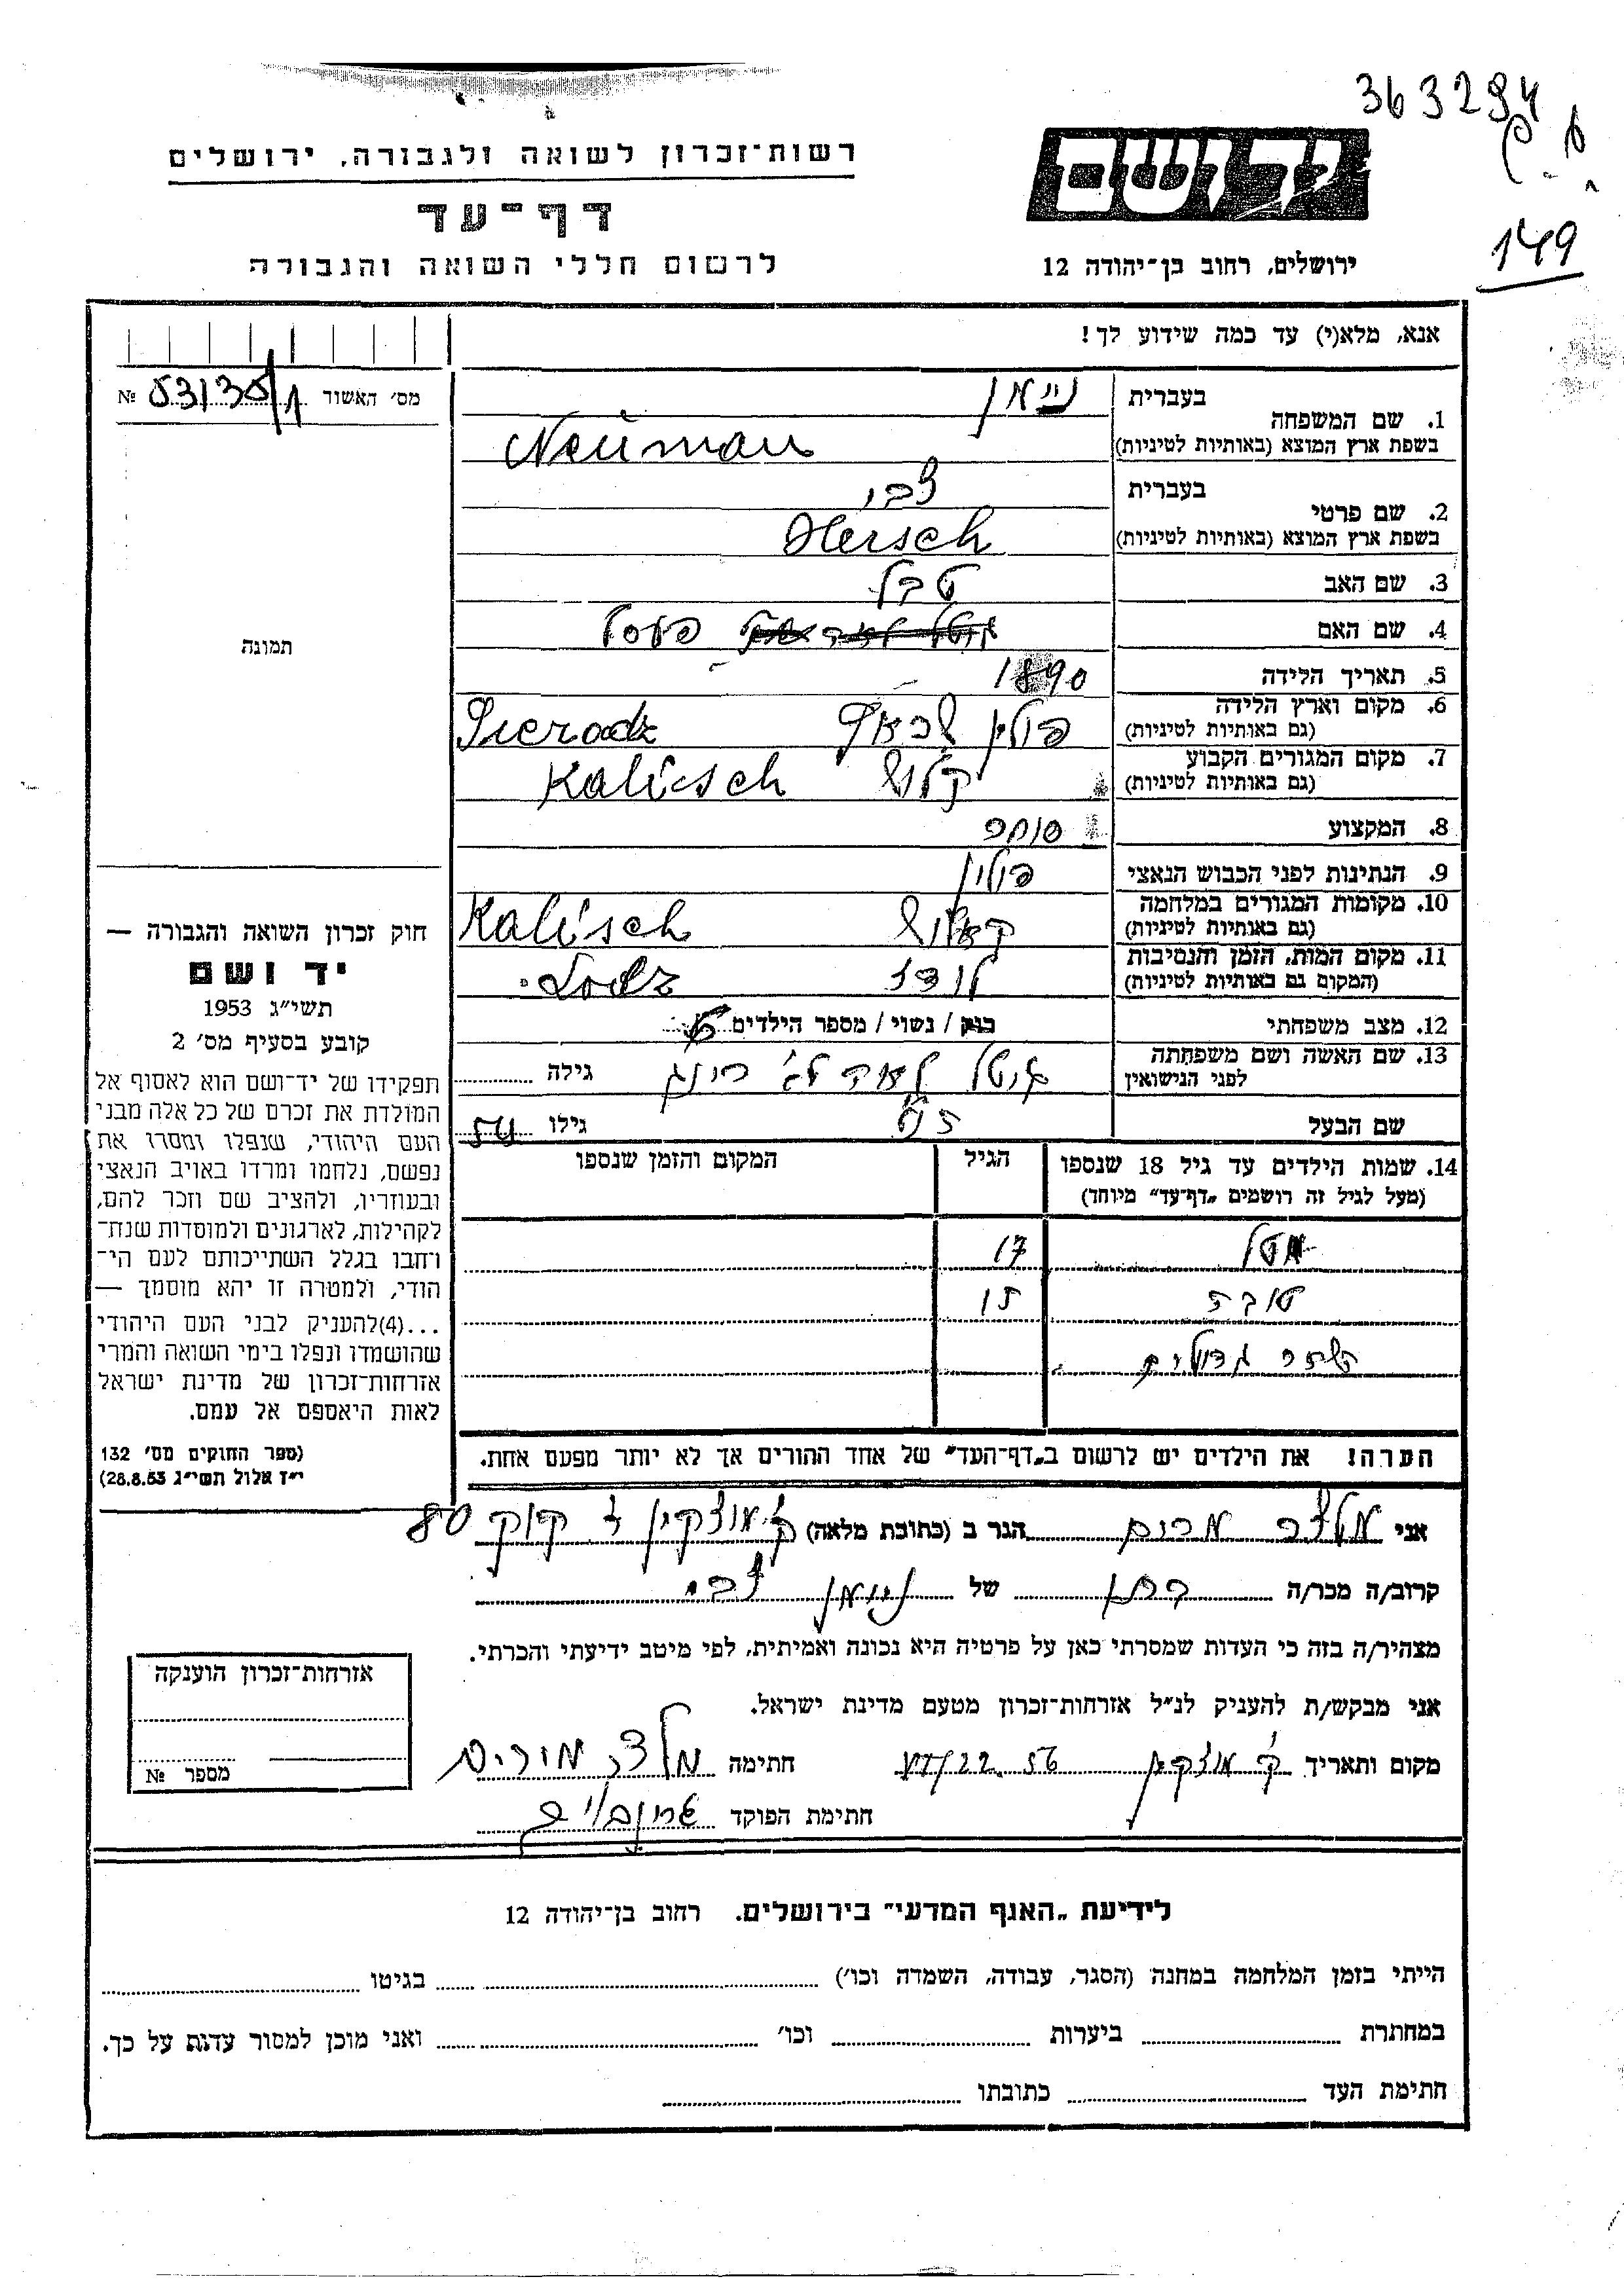 363294
149
יד ושם
רשות־זכרון לשואה ולגבורה, ירושלים
דף־עד
לרשום חללי השואה והגבורה
ירושלים, רחוב בן־יהודה 12
אנא, מלא(י) עד כמה שידוע לך!
מס׳ האשור № 53135/1
תמונה
1. שם המשפחה
בעברית ניימן
בשפת ארץ המוצא (באותיות לטיניות) Neüman
2. שם פרטי
בעברית צבי
בשפת ארץ המוצא (באותיות לטיניות) Hersch
3. שם האב
4. שם האם
5. תאריך הלידה 1890
6. מקום וארץ הלידה פולין Sieradz
(גם באותיות לטיניות)
7. מקום המגורים הקבוע קליש Kalisch
(גם באותיות לטיניות)
8. המקצוע סוחר
9. הנתינות לפני הכבוש הנאצי פולין
10. מקומות המגורים במלחמה קאליש Kalisch
(גם באותיות לטיניות)
11. מקום המות, הזמן והנסיבות לודז Lodz
(המקום גם באותיות לטיניות)
12. מצב משפחתי רווק / נשוי / מספר הילדים
13. שם האשה ושם משפחתה גיטל לאה גילה
לפני הנישואין
שם הבעל גילו 54
14. שמות הילדים עד גיל 18 שנספו הגיל המקום והזמן שנספו
(מעל לגיל זה רושמים „דף־עד״ מיוחד)
17
טובה 15
הערה! את הילדים יש לרשום ב„דף־העד״ של אחד ההורים אך לא יותר מפעם אחת.
חוק זכרון השואה והגבורה —
יד ושם
תשי״ג 1953
קובע בסעיף מס׳ 2
תפקידו של יד־ושם הוא לאסוף אל
המולדת את זכרם של כל אלה מבני
העם היהודי, שנפלו ומסרו את
נפשם, נלחמו ומרדו באויב הנאצי
ובעוזריו, ולהציב שם וזכר להם,
לקהילות, לארגונים ולמוסדות שנח־
רחבו בגלל השתייכותם לעם הי־
הודי, ולמטרה זו יהא מוסמך —
...(4)להעניק לבני העם היהודי
שהושמדו ונפלו בימי השואה והמרי
אזרחות־זכרון של מדינת ישראל
לאות היאספם אל עמם.
(ספר החוקים מס׳ 132
י״ז אלול תשי״ג 28.8.53)
אני מלצר מרים הגר ב (כתובת מלאה) ק. מוצקין ד קוק 80
קרוב/ה מכר/ה בתו של ניימן צבי
מצהיר/ה בזה כי העדות שמסרתי כאן על פרטיה היא נכונה ואמיתית, לפי מיטב ידיעתי והכרתי.
אני מבקש/ת להעניק לנ״ל אזרחות־זכרון מטעם מדינת ישראל.
מקום ותאריך ק׳ מוצקין 22. 56 חתימה מלצר מורים
חתימת הפוקד
אזרחות־זכרון הוענקה
מספר №
לידיעת „האגף המדעי״ בירושלים. רחוב בן־יהודה 12
הייתי בזמן המלחמה במחנה (הסגר, עבודה, השמדה וכו׳) בגיטו
במחתרת ביערות וכו׳ ואני מוכן למסור עדות על כך.
חתימת העד כתובתו